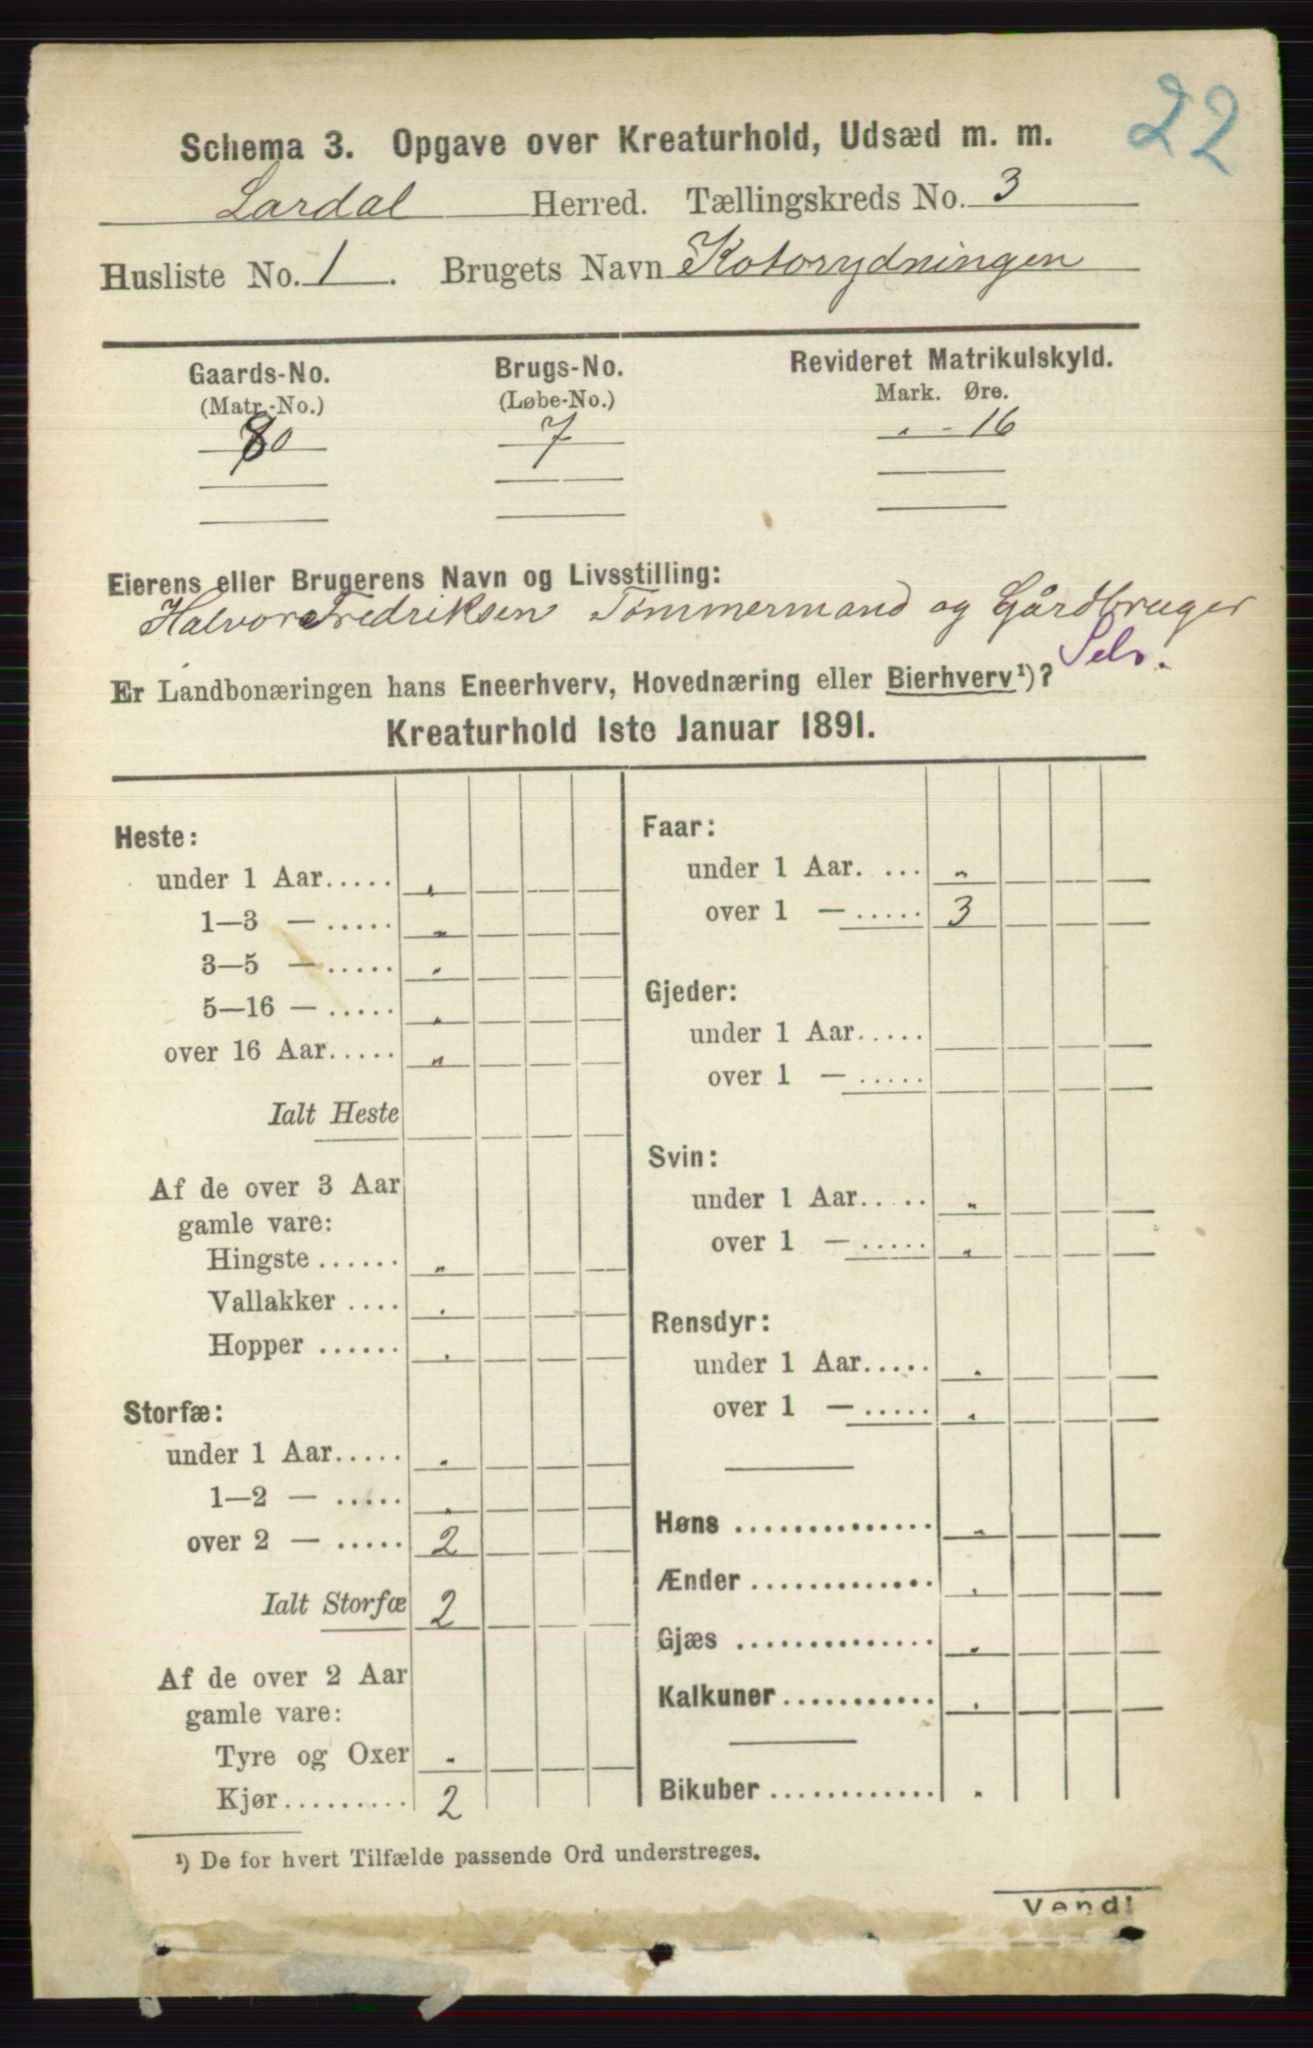 22
Schema 3. Opgave over Kreaturhold, Udsæd m. m.
Lardal Herred. Tællingskreds No. 3
Husliste No. 1. Brugets Navn Kotorydningen
Gaards-No. Brugs-No. Revideret Matrikulskyld.
(Matr.-No.) (Løbe-No.) Mark. Øre.
80 7 " - 16
Eierens eller Brugerens Navn og Livsstilling:
Halvor Fredriksen Tømmermand og Gårdbruger
Selv.
Er Landbonæringen hans Eneerhverv, Hovednæring eller Bierhverv¹)?
Kreaturhold 1ste Januar 1891.
Heste:
under 1 Aar..... "
1—3 — ..... "
3—5 — ..... "
5—16 — ..... "
over 16 Aar..... "
Ialt Heste
Af de over 3 Aar
gamle vare:
Hingste ...... "
Vallakker .... "
Hopper ...... "
Storfæ:
under 1 Aar..... "
1—2 — ..... "
over 2 — ..... 2
Ialt Storfæ 2
Af de over 2 Aar
gamle vare:
Tyre og Oxer "
Kjør......... 2
Faar:
under 1 Aar. ... "
over 1 — ..... 3
Gjeder:
under 1 Aar.....
over 1 — .....
Svin:
under 1 Aar..... "
over 1 — ..... "
Rensdyr:
under 1 Aar..... "
over 1 — ..... "
Høns .............. "
Ænder ............. "
Gjæs .............. "
Kalkuner........... "
Bikuber ............ "
¹) De for hvert Tilfælde passende Ord understreges.
Vend!